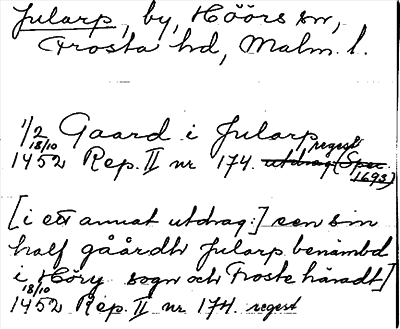 Jularp, by, Höörs sn,
Frosta hd, Malm. l.
1/2 Gaard i Jularp regest
18/10 1452 Rep. II nr 174. utdrag (Spec. 1693)
[i ett annat utdrag:] een sin
half gåårdh Jularp benämbd
i Höry sogn och Froste häradt]
18/10 1452 Rep. II nr 174. regest